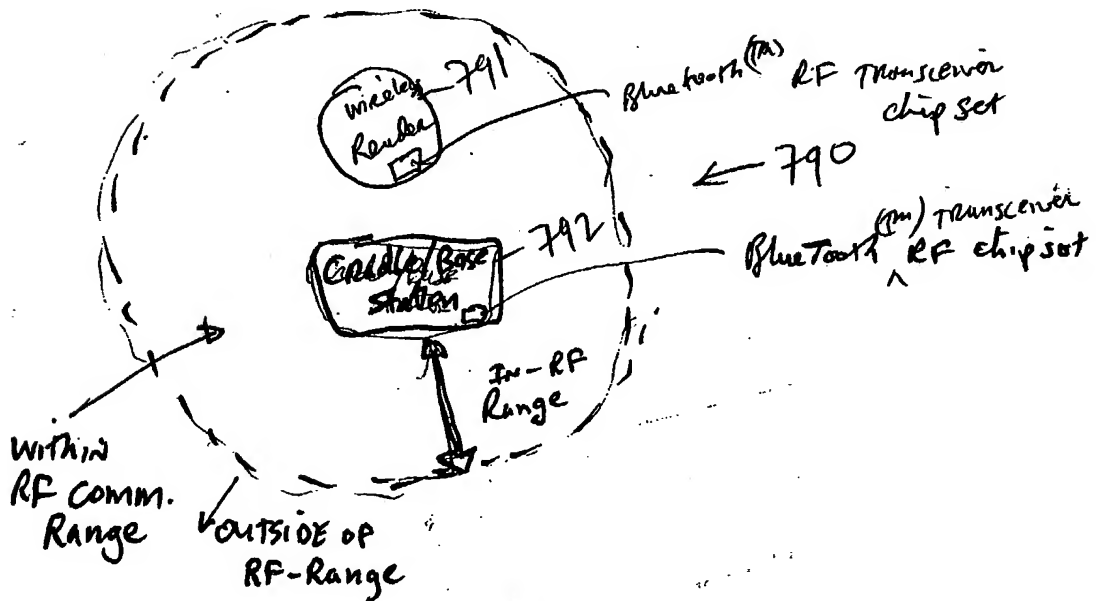 791
Wireless
Reader
Bluetooth (TM) RF Transceiver
chip set
790
792
Cradle/Base
Station
BlueTooth (TM) Transceiver
^ RF chip set
In-RF
Range
Within
RF Comm.
Range
OUTSIDE OF
RF-Range